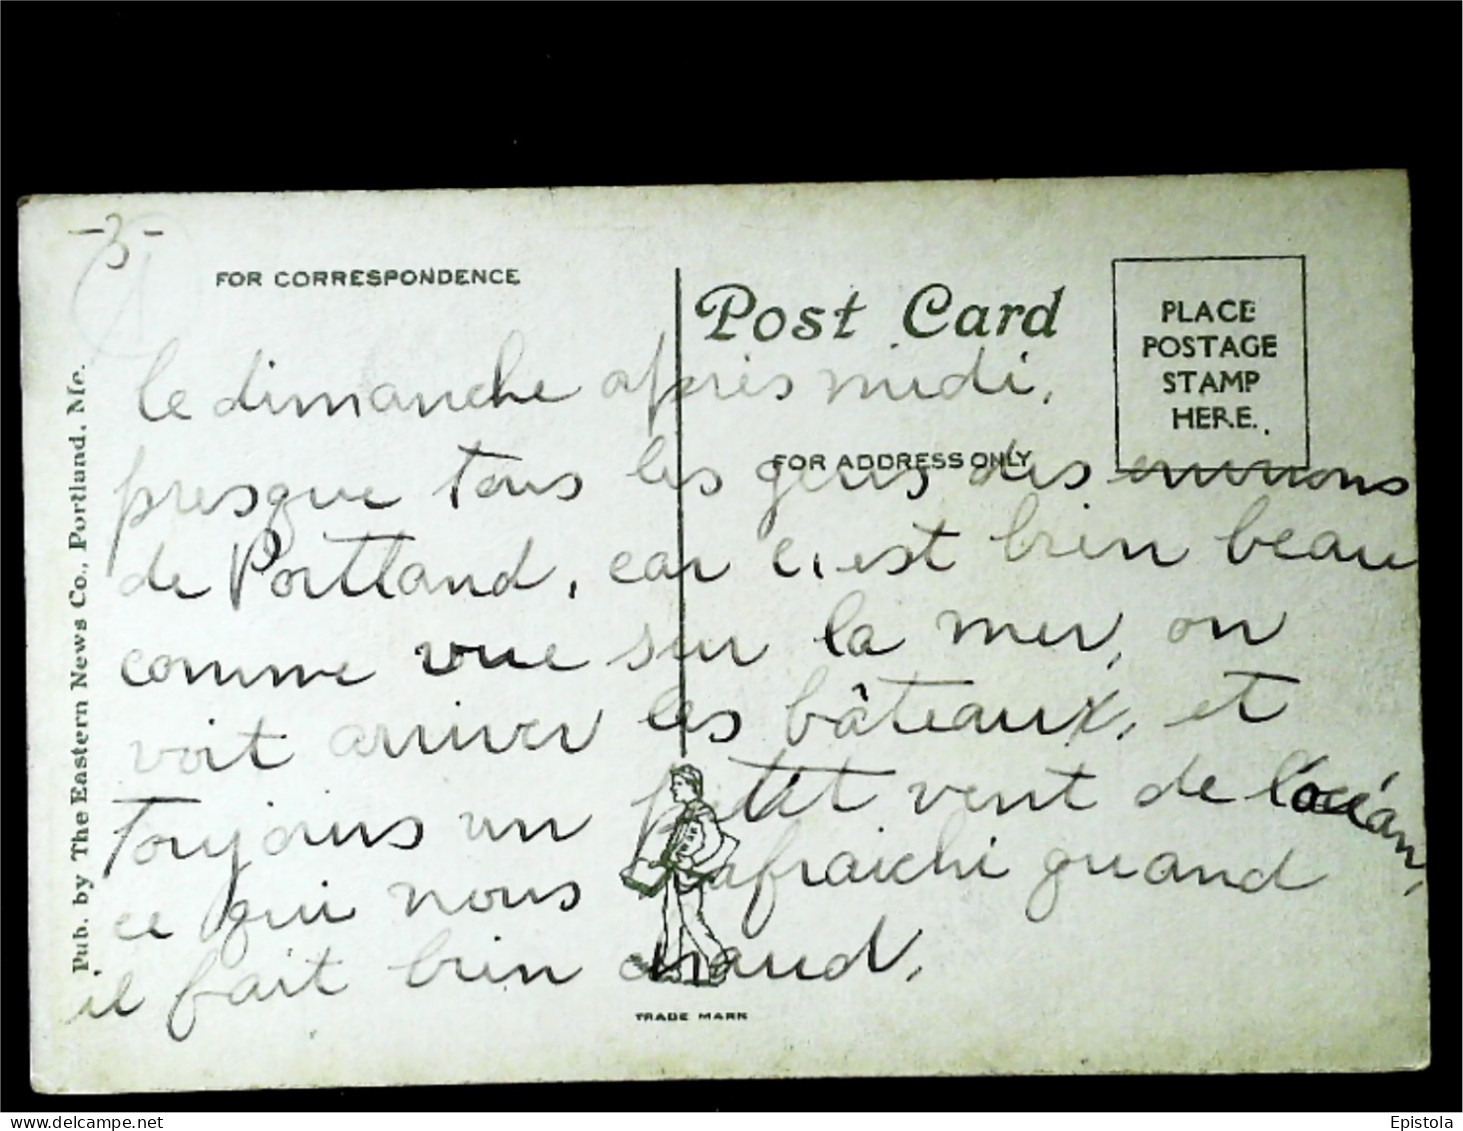 -3-
FOR CORRESPONDENCE
Post Card
PLACE
POSTAGE
STAMP
HERE.
FOR ADDRESS ONLY
le dimanche après midi,
presque tous les gens des environs
de Portland, car c'est bien beau
comme vue sur la mer, on
voit arriver les bâteaux, et
toujours un petit vent de l'océan,
ce qui nous rafraichi quand
il fait bien chaud.
TRADE MARK
Pub. by The Eastern News Co., Portland, Me.
delcampe.net
Epistola